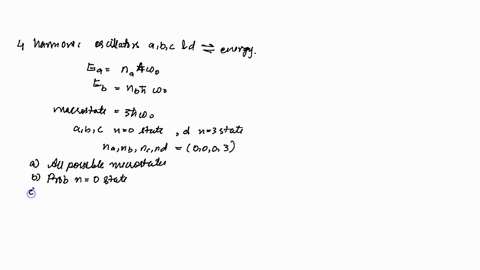 4 harmonic oscillators a,b,c & d ⇌ energy.
Ea = na ħω0
Eb = nb ħ ω0
macrostate = 3ħω0
a,b,c n=0 state , d n=3 state
na,nb,nc,nd = (0,0,0,3)
a) All possible microstates
b) Prob n=0 state
c)